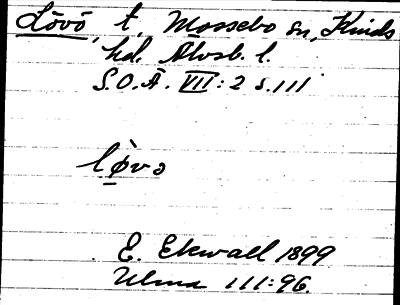 Lövö, t. Mossebo sn, Kinds
hd. Älvsb. l.
S.O.Ä. VII:2 s. 111
lø̀vo
E. Ekwall 1899
Ulma 111:96.